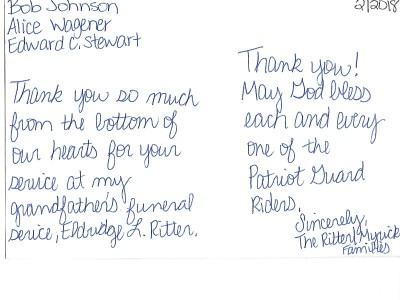 Bob Johnson
Alice Wagener
Edward C. Stewart
2/2018
Thank you so much
from the bottom of
our hearts for your
service at my
grandfather's funeral
serice, Eldridge L. Ritter.
Thank you!
May God bless
each and every
one of the
Patriot Guard
Riders.
Sincerely,
The Ritter/Myrick
Families